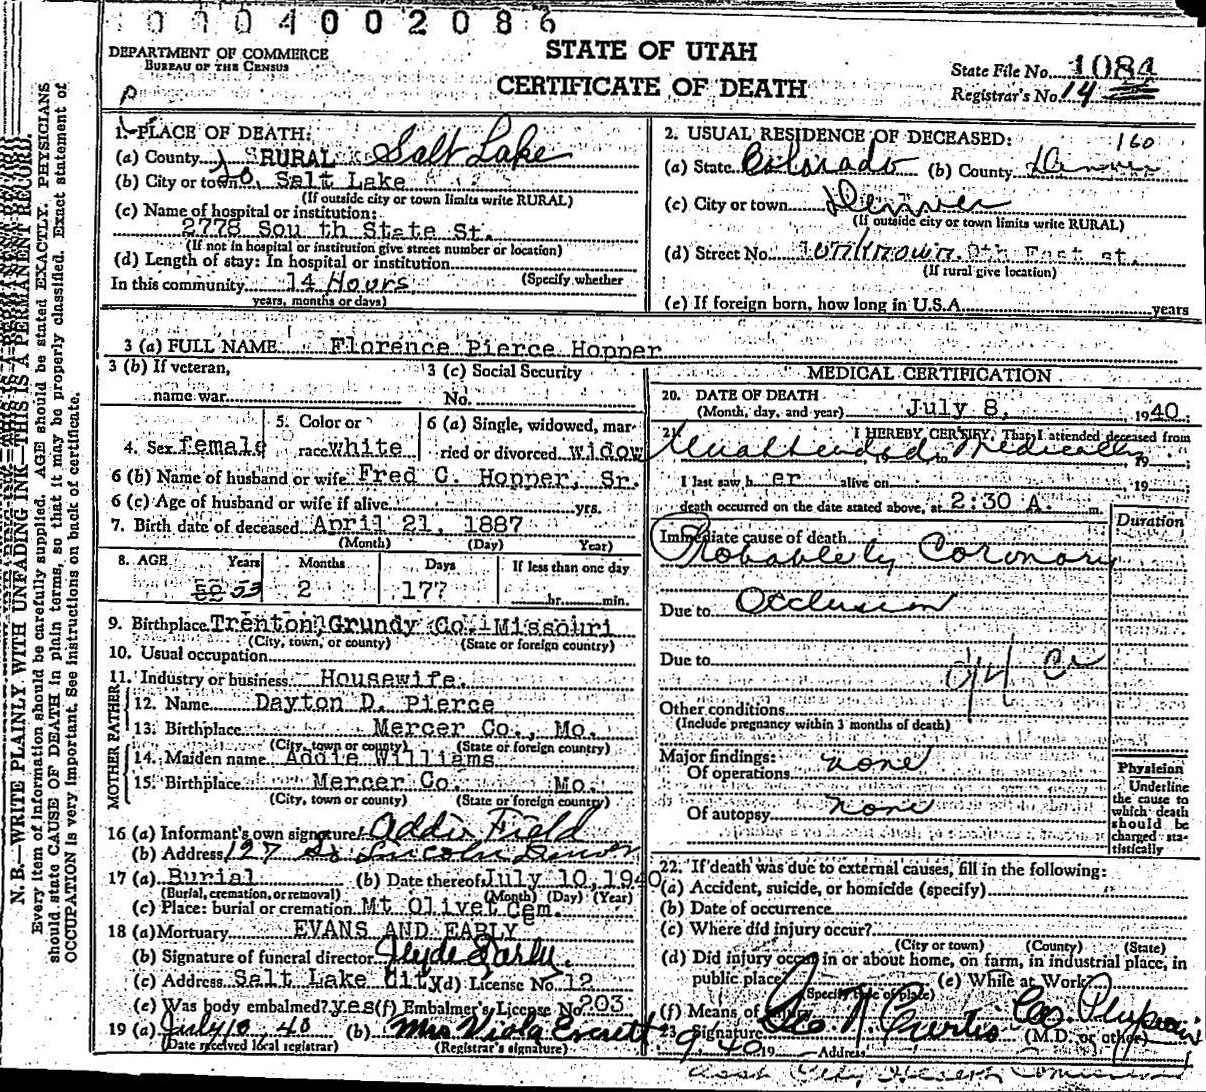 0 0 4 0 0 2 0 8 6
DEPARTMENT OF COMMERCE
BUREAU OF THE CENSUS
STATE OF UTAH
CERTIFICATE OF DEATH
State File No. 1084
Registrar's No. 14
N. B.—WRITE PLAINLY WITH UNFADING INK—THIS IS A PERMANENT RECORD.
Every item of information should be carefully supplied. AGE should be stated EXACTLY. PHYSICIANS
should state CAUSE OF DEATH in plain terms, so that it may be properly classified. Exact statement of
OCCUPATION is very important. See instructions on back of certificate.
1. PLACE OF DEATH:
(a) County RURAL Salt Lake
(b) City or town So. Salt Lake
(If outside city or town limits write RURAL)
(c) Name of hospital or institution:
2778 South State St.
(If not in hospital or institution give street number or location)
(d) Length of stay: In hospital or institution
(Specify whether
In this community 14 Hours
years, months or days)
2. USUAL RESIDENCE OF DECEASED: 160
(a) State Colorado (b) County Denver
(c) City or town Denver
(If outside city or town limits write RURAL)
(d) Street No. unknown. 9th East st.
(If rural give location)
(e) If foreign born, how long in U.S.A. years
3 (a) FULL NAME Florence Pierce Hopper
3 (b) If veteran,
name war
3 (c) Social Security
No.
4. Sex female
5. Color or
race white
6 (a) Single, widowed, mar-
ried or divorced widow
6 (b) Name of husband or wife Fred C. Hopper, Sr.
6 (c) Age of husband or wife if alive yrs.
7. Birth date of deceased April 21, 1887
(Month) (Day) Year)
8. AGE Years Months Days If less than one day
53 2 177 hr. min.
9. Birthplace Trenton, Grundy Co. Missouri
(City, town, or county) (State or foreign country)
10. Usual occupation
11. Industry or business Housewife.
FATHER
12. Name Dayton D. Pierce
13. Birthplace Mercer Co., Mo.
(City, town or county) (State or foreign country)
MOTHER
14. Maiden name Addie Williams
15. Birthplace Mercer Co. Mo.
(City, town or county) (State or foreign country)
16 (a) Informant's own signature Addie Field
(b) Address 127 So Lincoln Denver
17 (a) Burial (b) Date thereof July 10, 1940
(Burial, cremation, or removal) (Month) (Day) (Year)
(c) Place: burial or cremation Mt Olivet Cem.
18 (a) Mortuary EVANS AND EARLY
(b) Signature of funeral director Clyde Early.
(c) Address Salt Lake City (d) License No. 12
(e) Was body embalmed? yes (f) Embalmer's License No. 203
19 (a) July 10, 40 (b) Mrs Viola Everett
(Date received local registrar) (Registrar's signature)
MEDICAL CERTIFICATION
20. DATE OF DEATH
(Month, day, and year) July 8, 1940
21. I HEREBY CERTIFY, That I attended deceased from
Unattended Medically
19 to 19
I last saw her alive on 19
death occurred on the date stated above, at 2:30 A. m.
Duration
Immediate cause of death
Probablely Coronary
Due to Occlusion
Due to
94 Ca
Other conditions
(Include pregnancy within 3 months of death)
Major findings:
Of operations none
Of autopsy none
Physician
Underline
the cause to
which death
should be
charged sta-
tistically
22. If death was due to external causes, fill in the following:
(a) Accident, suicide, or homicide (specify)
(b) Date of occurrence
(c) Where did injury occur?
(City or town) (County) (State)
(d) Did injury occur in or about home, on farm, in industrial place, in
public place? (e) While at Work
(Specify type of place)
(f) Means of
23. Signature Geo. N. Curtis Co. Physician
(M.D. or other)
9 40 19 Address
City Health Commissioner